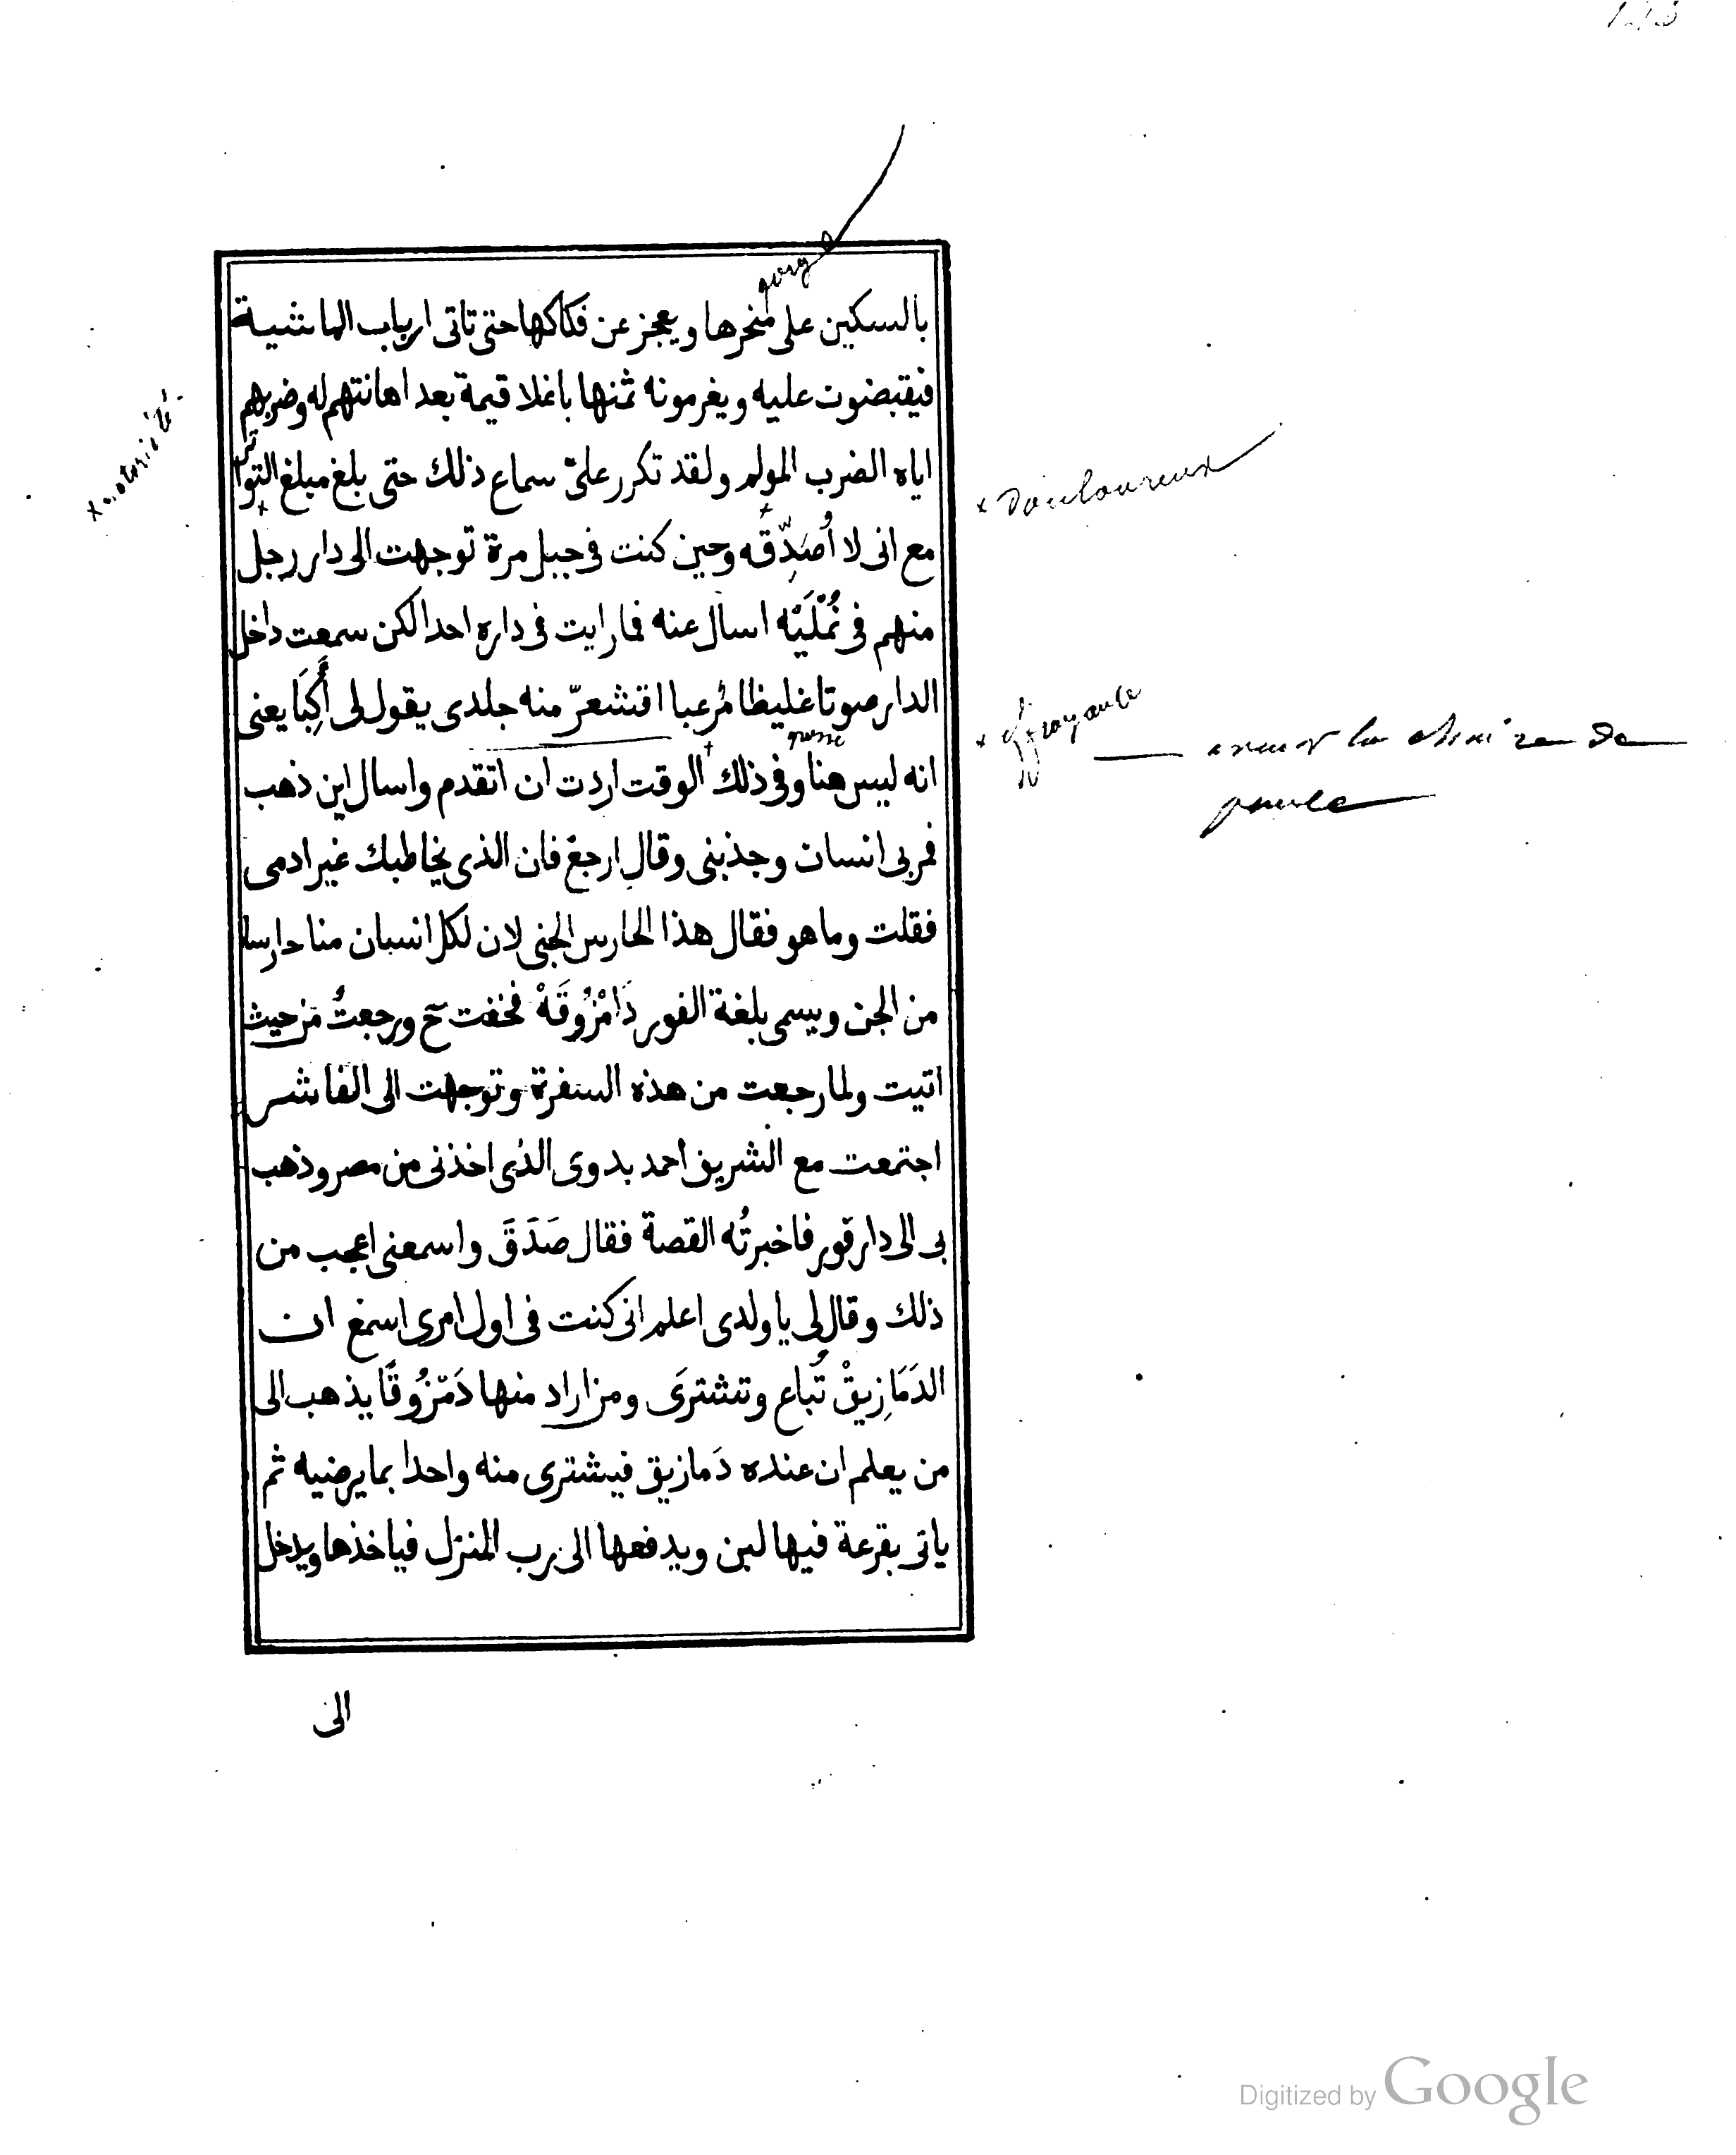 بالسكين على منخرها ويعجز عن فكاكها حتى تاتى ارباب الماشية
gorge
فيقبضون عليه ويغرمونه ثمنها باغلا قيمة بعد اهانتهم له وضربهم
اياه الضرب المولم ولقد تكرر علىّ سماع ذلك حتى بلغ مبلغ التواتر
× notoriété
× douloureux
مع انى لا أُصَدِّقه وحين كنت فى جبل مرة توجهت الى دار رجل
منهم فى نُمْلَيْه اسال عنه فما رايت فى داره احدا لكن سمعت داخل
الدار صوتا غليظا مُرعبا اقتشعرّ منه جلدى يقول لى أَكِبَا يعنى
× effrayante
avoir la chaire de
poule
انه ليس هنا وفى ذلك الوقت اردت ان اتقدم واسال اين ذهب
فمر بى انسان وجذبنى وقال ارجع فان الذى يخاطبك غير ادمى
فقلت وما هو فقال هذا الحارس الجنى لان لكل انسان منا حارسا
من الجن ويسمى بلغة الفور دَامْزُوقَهْ فخفت ح ورجعتُ من حيث
اتيت ولما رجعت من هذه السفرة وتوجهت الى الفاشر
اجتمعت مع الشريف احمد بدوى الذى اخذنى من مصر وذهب
بى الى دار فور فاخبرتُه القصة فقال صَدَقَ واسمعنى اعجب من
ذلك وقال لى يا ولدى اعلم انى كنت فى اول امرى اسمع ان
الدَمَازِيقْ تُباع وتشترَى ومن اراد منها دَمْزُوقًا يذهب الى
من يعلم ان عنده دَمازيق فيشترى منه واحدا بما يرضيه ثم
ياتى بقرعة فيها لبن ويدفعها الى رب المنزل فياخذها ويدخل
الى
Digitized by Google